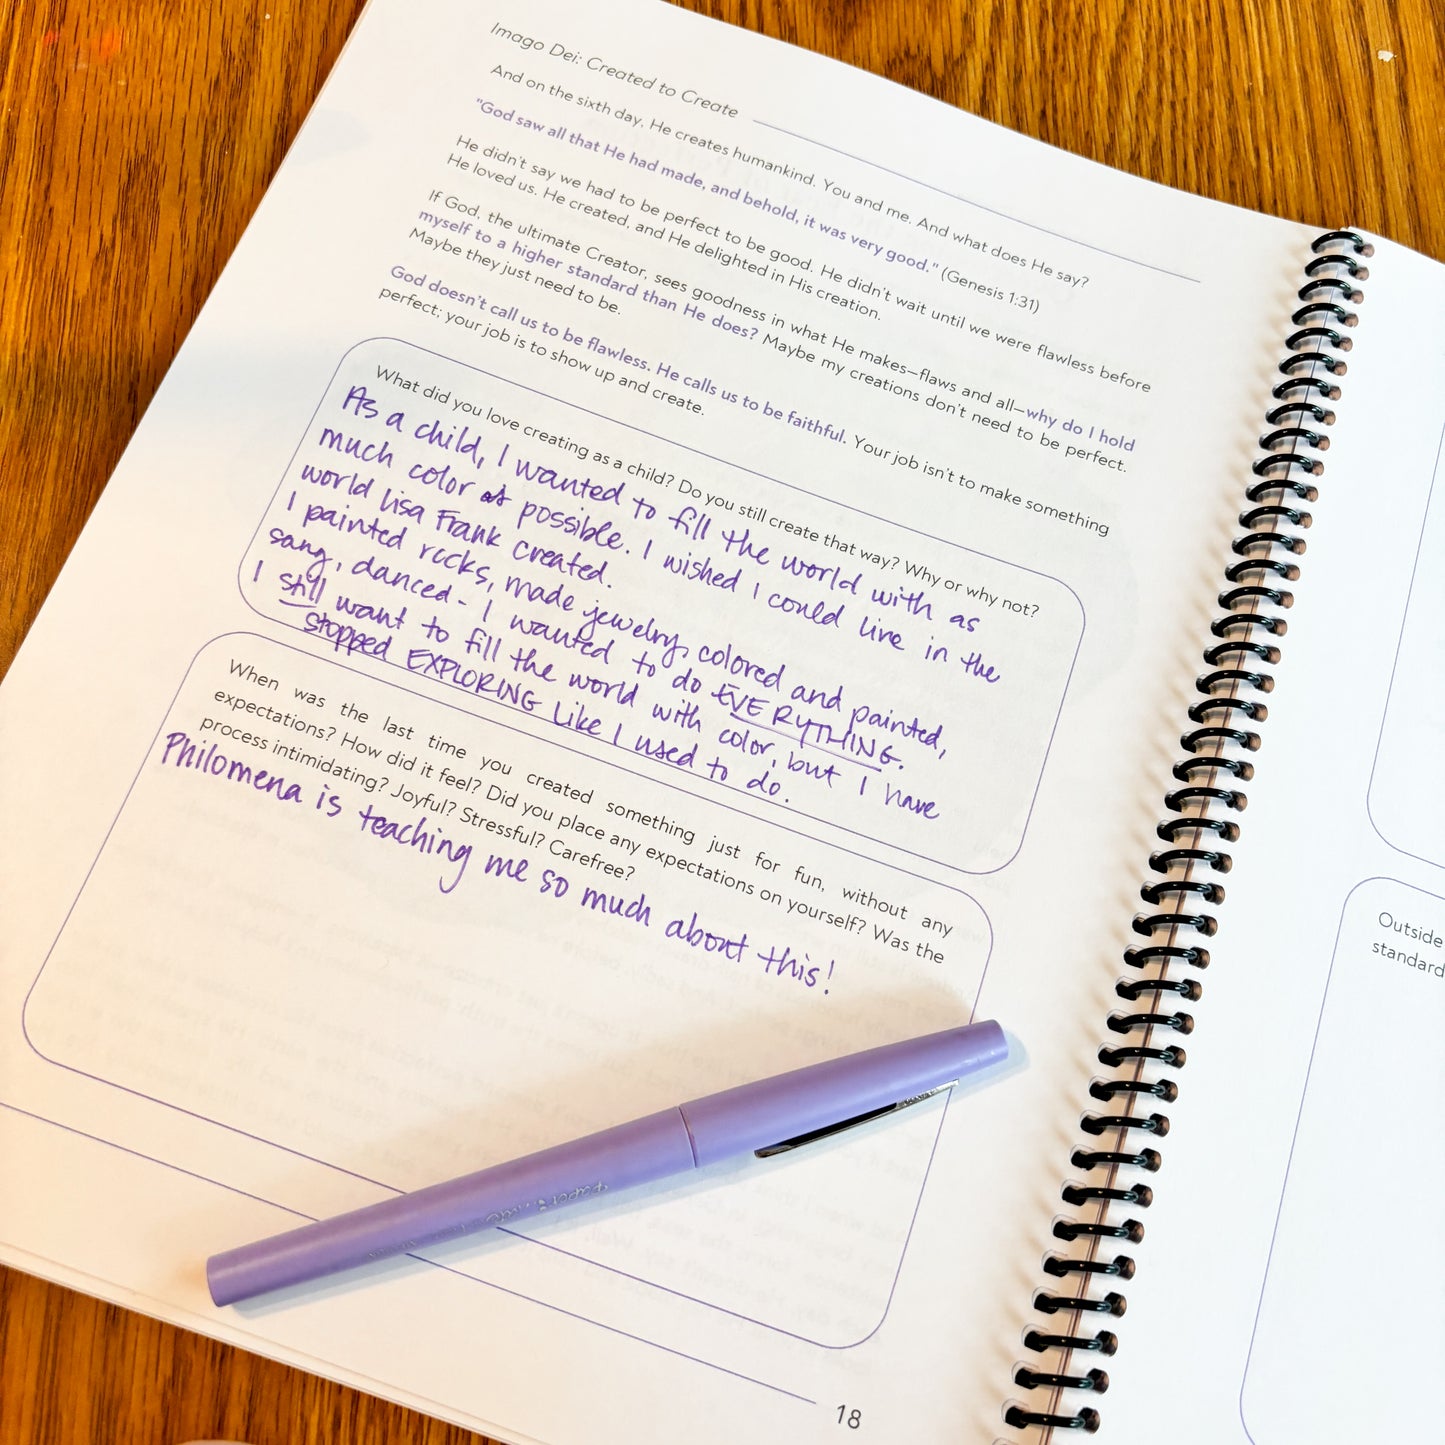 Imago Dei: Created to Create
And on the sixth day. He creates humankind. You and me. And what does He say?
"God saw all that He had made, and behold, it was very good." (Genesis 1:31)
He didn't say we had to be perfect to be good. He didn't wait until we were flawless before
He loved us. He created, and He delighted in His creation.
If God, the ultimate Creator, sees goodness in what He makes—flaws and all—why do I hold
myself to a higher standard than He does? Maybe my creations don't need to be perfect.
Maybe they just need to be.
God doesn't call us to be flawless. He calls us to be faithful. Your job isn't to make something
perfect; your job is to show up and create.
What did you love creating as a child? Do you still create that way? Why or why not?
As a child, I wanted to fill the world with as
much color as possible. I wished I could live in the
world Lisa Frank created.
I painted rocks, made jewelry, colored and painted,
sang, danced - I wanted to do EVERYTHING.
I still want to fill the world with color, but I have
stopped EXPLORING like I used to do.
When was the last time you created something just for fun, without any
expectations? How did it feel? Did you place any expectations on yourself? Was the
process intimidating? Joyful? Stressful? Carefree?
Philomena is teaching me so much about this!
18
Outside
standard